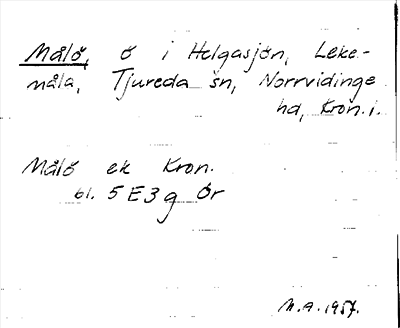 Målö, ö i Helgasjön, Leke-
måla, Tjureda sn, Norrvidinge
hd, Kron.l.
Målö ek Kron.
bl. 5 E3g Ör
M.A. 1957.